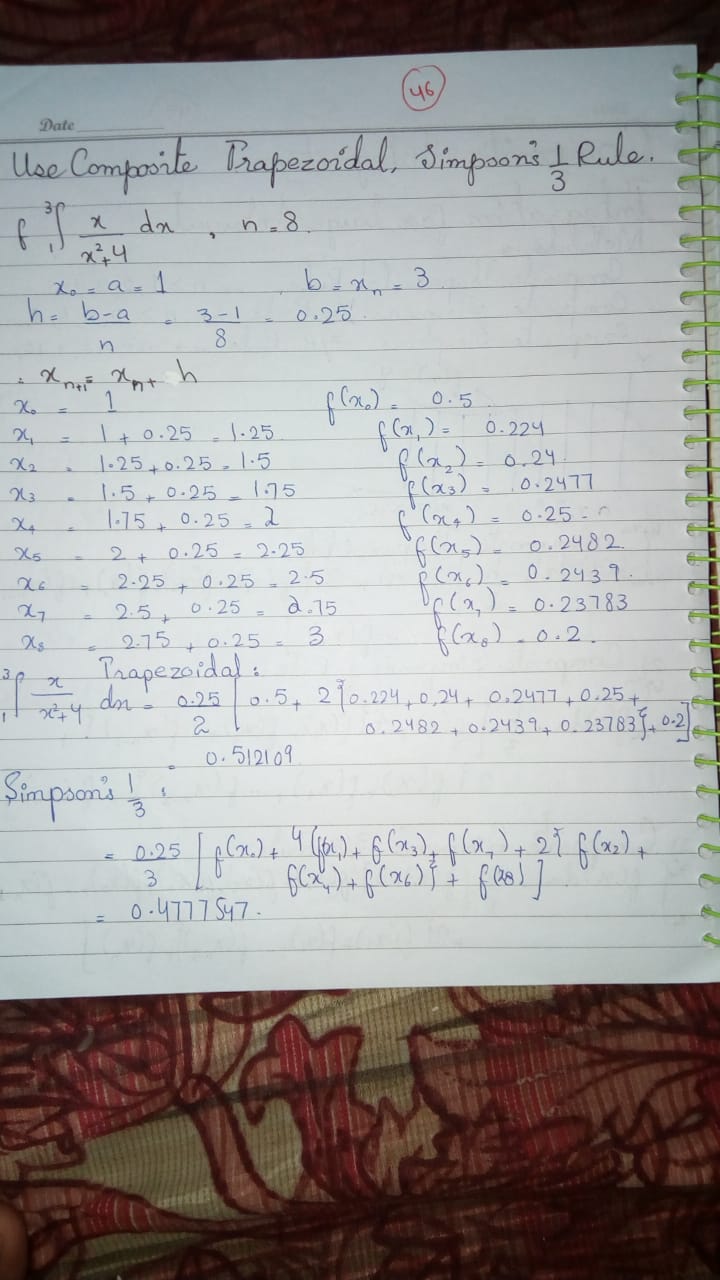 46
Date
Use Composite Trapezoidal, Simpson's 1/3 Rule.
f ³∫₁ x/(x²+4) dx , n = 8.
x₀ = a = 1 , b = xₙ = 3
h = (b-a)/n = (3-1)/8 = 0.25
∴ xₙ₊₁ = xₙ + h
x₀ = 1 f(x₀) = 0.5
x₁ = 1 + 0.25 = 1.25 f(x₁) = 0.224
x₂ = 1.25 + 0.25 = 1.5 f(x₂) = 0.24
x₃ = 1.5 + 0.25 = 1.75 f(x₃) = 0.2477
x₄ = 1.75 + 0.25 = 2 f(x₄) = 0.25
x₅ = 2 + 0.25 = 2.25 f(x₅) = 0.2482
x₆ = 2.25 + 0.25 = 2.5 f(x₆) = 0.2439
x₇ = 2.5 + 0.25 = 2.75 f(x₇) = 0.23783
x₈ = 2.75 + 0.25 = 3 f(x₈) = 0.2
Trapezoidal :
³∫₁ x/(x²+4) dx = 0.25/2 [0.5 + 2{0.224 + 0.24 + 0.2477 + 0.25 +
0.2482 + 0.2439 + 0.23783} + 0.2]
= 0.512109
Simpson's 1/3 :
= 0.25/3 [f(x₀) + 4(f(x₁) + f(x₃) + f(x₇) + 2{f(x₂) +
f(x₄) + f(x₆)} + f(x8)]
= 0.4777547.